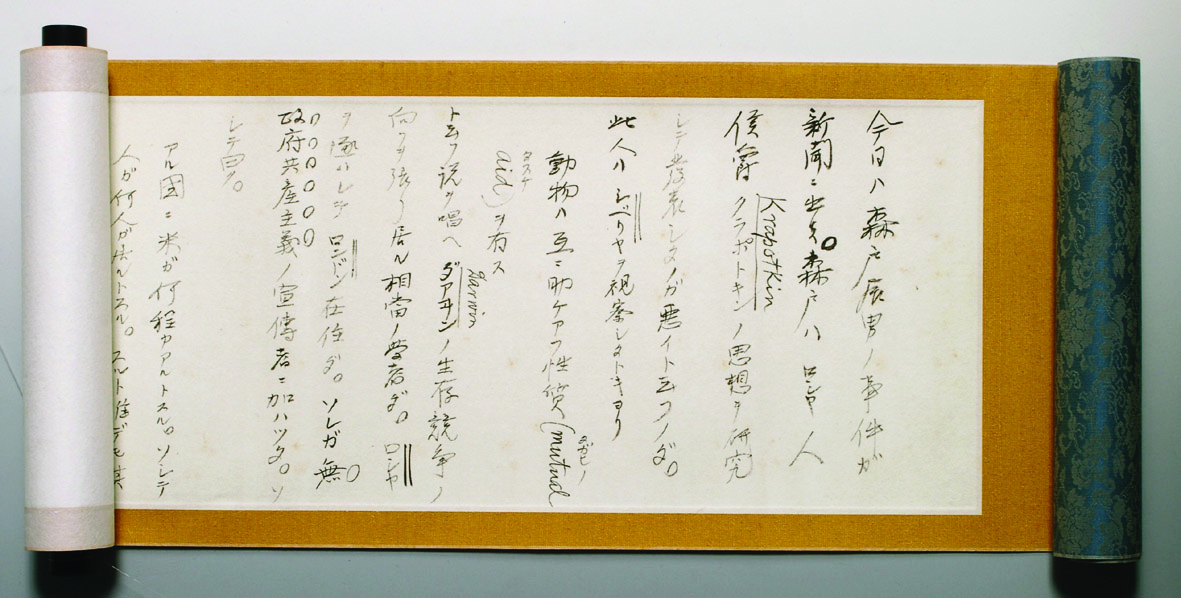 今日ハ森戸辰男ノ事件ガ
新聞ニ出タ。森戸ハ ロシヤ 人
侯爵 クラポトキンノ思想ヲ研究
Krapotkin
シテ発表シタノガ悪イト云フノダ。
此人ハ シベリヤヲ視察シタトキヨリ
動物ハ互ニ助ケアフ性質(mutual
タガヒノ
aid)ヲ有ス
タスケ
ト云フ説ヲ唱ヘ ダアヰンノ生存競争ノ
Darwin
向フヲ張リ居ル相當ノ学者ダ。ロシヤ
ヲ逐ハレテ ロンドン在住ダ。ソレガ無
政府共産主義ノ宣傳者ニ加ハツタ。ソ
シテ曰ク。
アル國ニ米ガ何程カアルトスル。ソシテ
人ガ何人カ居ルトスル。スルト誰デモ其